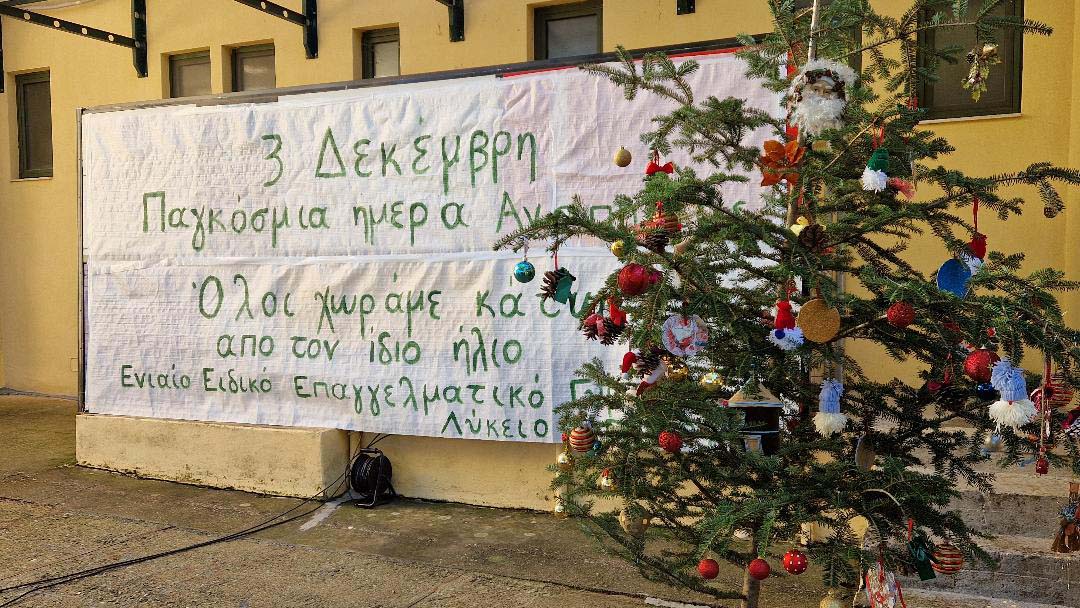 3 Δεκέμβρη
Παγκόσμια ημέρα
Όλοι χωράμε κάτω
απο τον ίδιο ήλιο
Ενιαίο Ειδικό Επαγγελματικό
Λύκειο